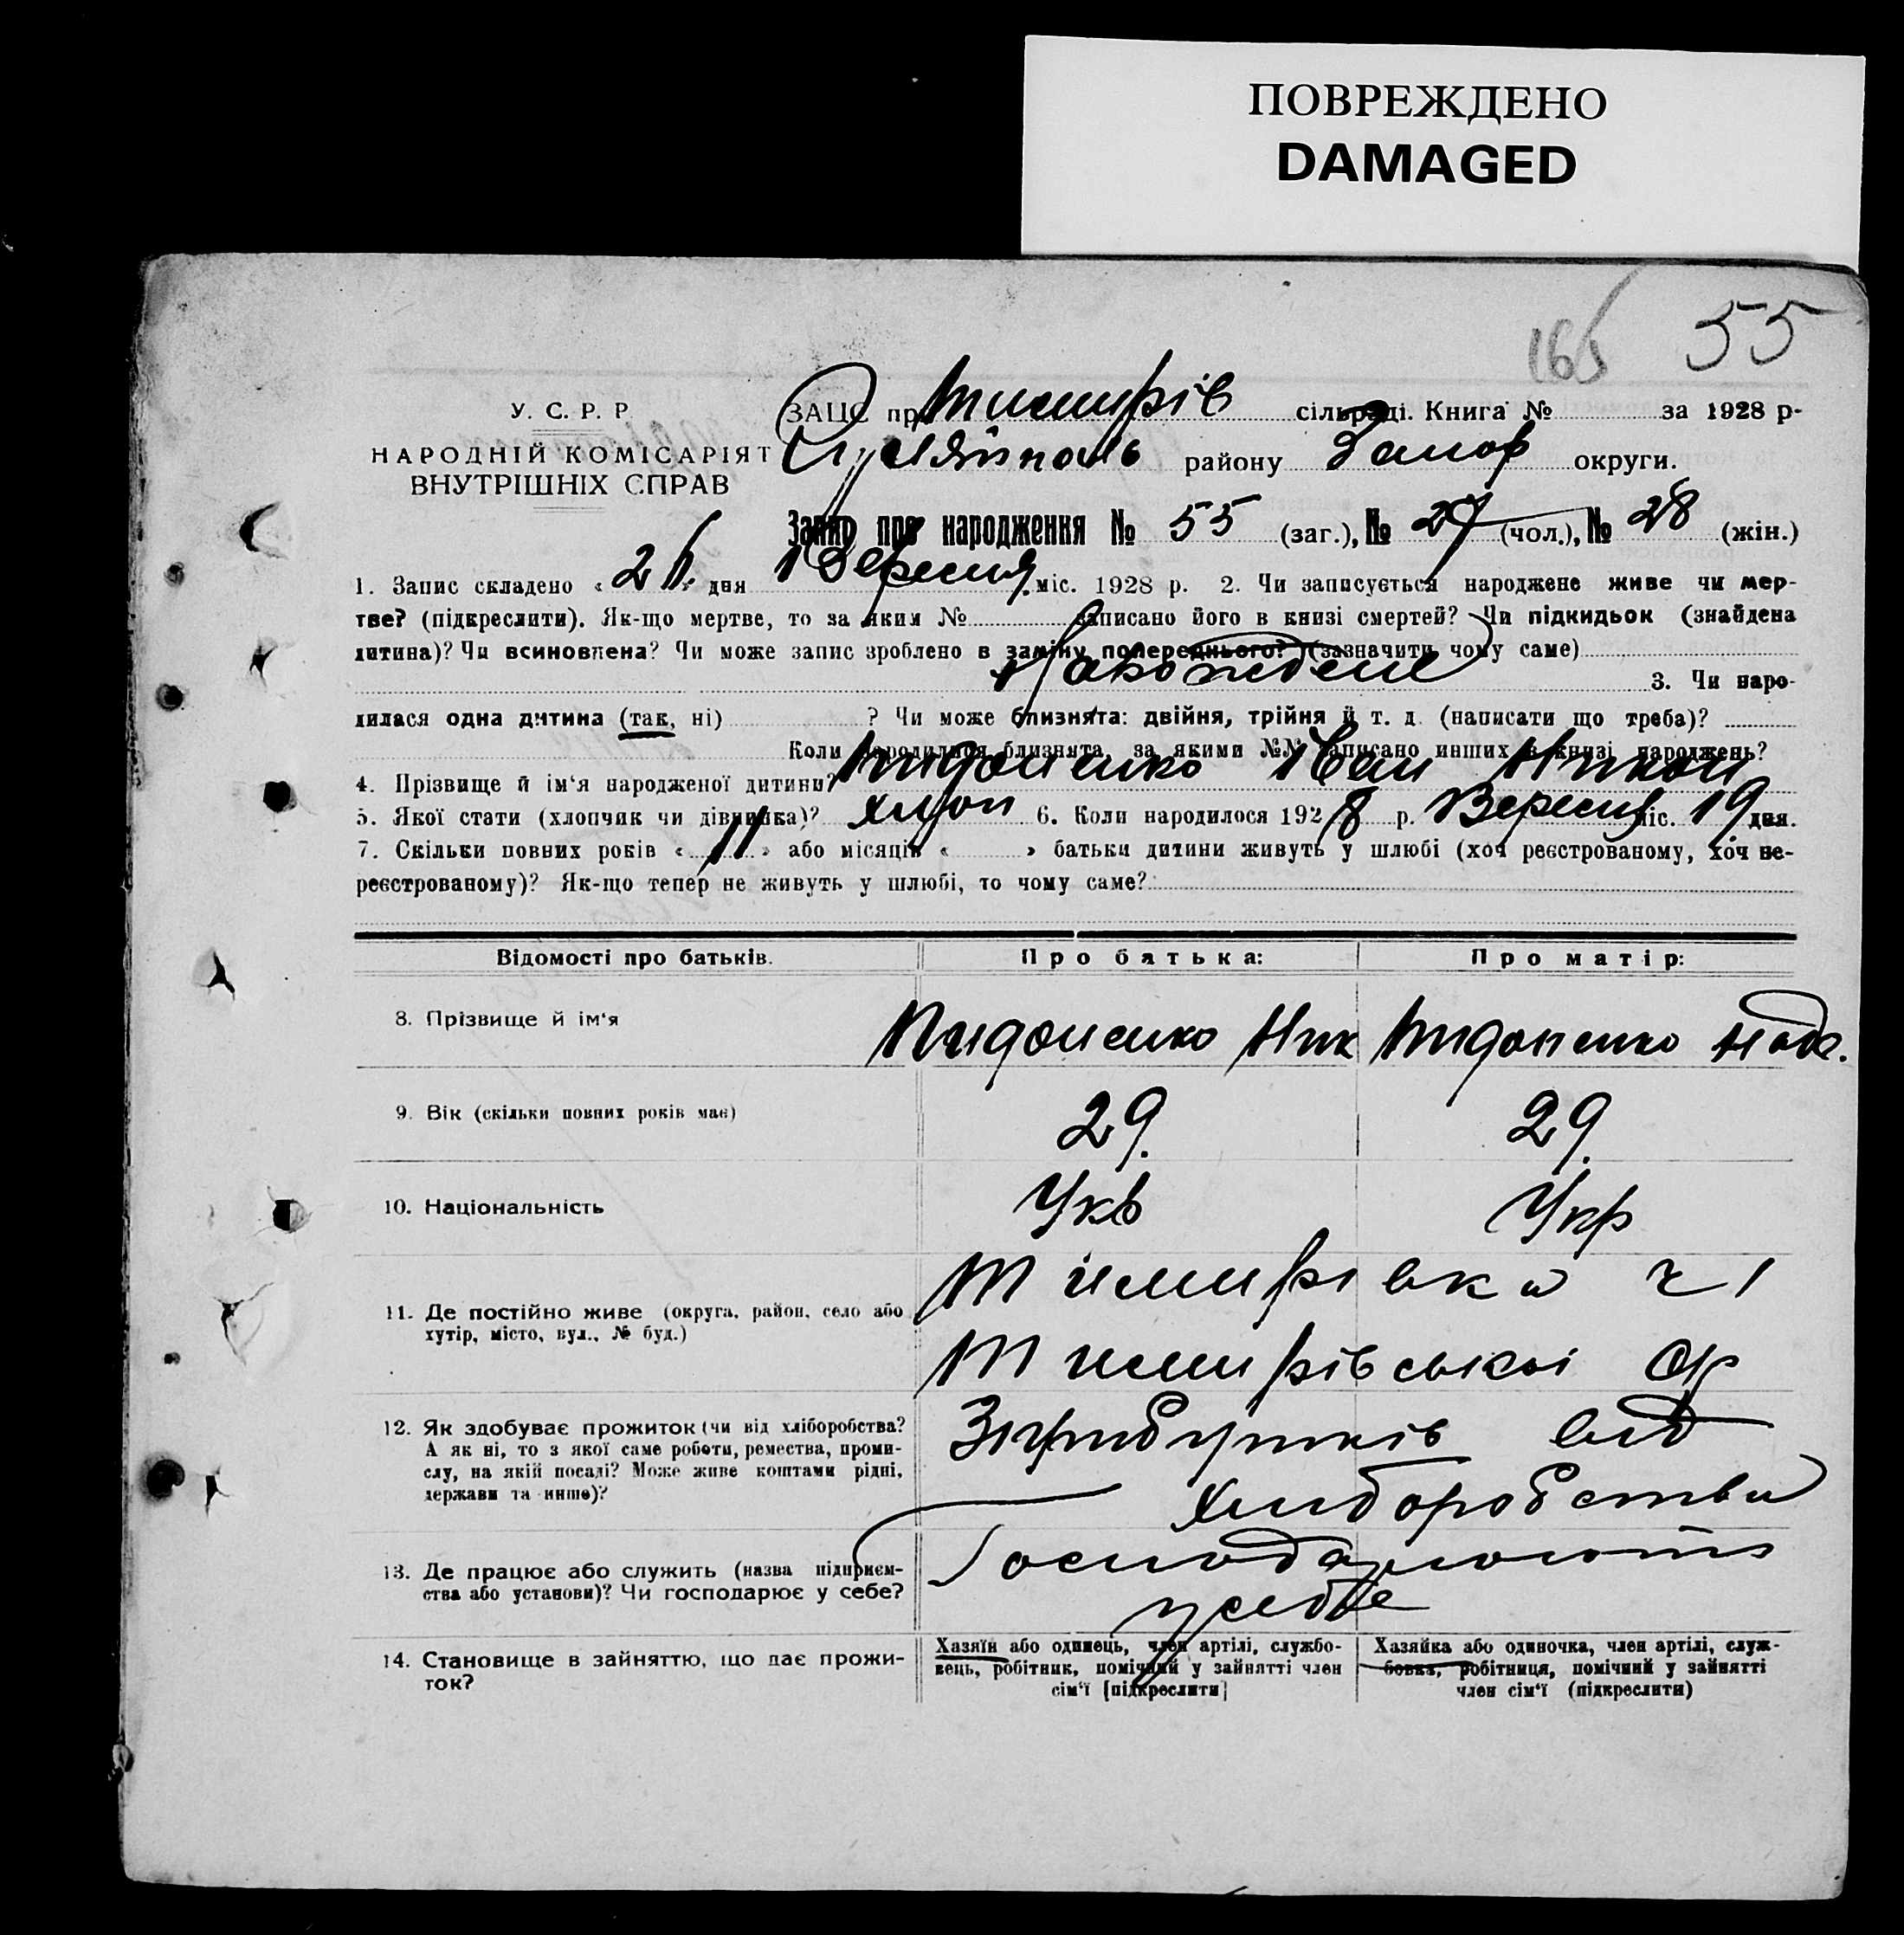 ПОВРЕЖДЕНО
DAMAGED
165 55
У. С. Р. Р.
НАРОДНІЙ КОМІСАРІЯТ
ВНУТРІШНІХ СПРАВ
ЗАЦС при Тимирів сільраді. Книга № за 1928 р-
району Запор округи.
Запис про народження № 55 (заг.), № 27 (чол.), № 28 (жін.)
1. Запис складено « дня Вересня міс. 1928 р. 2. Чи записується народжене живе чи мер-
тве? (підкреслити). Як-що мертве, то за яким № записано його в книзі смертей? Чи підкидьок (знайдена
дитина)? Чи всиновлена? Чи може запис зроблено в заміну попереднього? (зазначити чому саме)
3. Чи наро-
дилася одна дитина (так, ні) ? Чи може близнята: двійня, трійня й т. д. (написати що треба)?
Коли народилися близнята, за якими №№ записано инших в книзі народжень?
4. Прізвище й ім'я народженої дитини? Пидоненко Іван Никон
5. Якої стати (хлопчик чи дівчинка)? хлоп 6. Коли народилося 1928 р. Вересня міс. 19 дня.
7. Скільки повних років « 11 » або місяців « » батьки дитини живуть у шлюбі (хоч реєстрованому, хоч не-
реєстрованому)? Як-що тепер не живуть у шлюбі, то чому саме?
Відомості про батьків. Про батька: Про матір:
8. Прізвище й ім'я Пидоненко Ник Пидоненко Надє.
9. Вік (скільки повних років має) 29. 29.
10. Національність Укр Укр
11. Де постійно живе (округа, район, село або
хутір, місто, вул., № буд.)
Тимирівка
Тимирівської
12. Як здобуває прожиток (чи від хліборобства?
А як ні, то з якої саме роботи, ремества, проми-
слу, на якій посаді? Може живе коштами рідні,
держави та инше)?
від
хлиборобства
13. Де працює або служить (назва підприєм-
ства або установи)? Чи господарює у себе?
Господарюють
у себе
14. Становище в зайняттю, що дає прожи-
ток?
Хазяїн або одинець, член артілі, службо-
вець, робітник, помічний у зайнятті член
сім'ї [підкреслити]
Хазяйка або одиночка, член артілі, служ-
бовка, робітниця, помічний у зайнятті
член сім'ї (підкреслити)